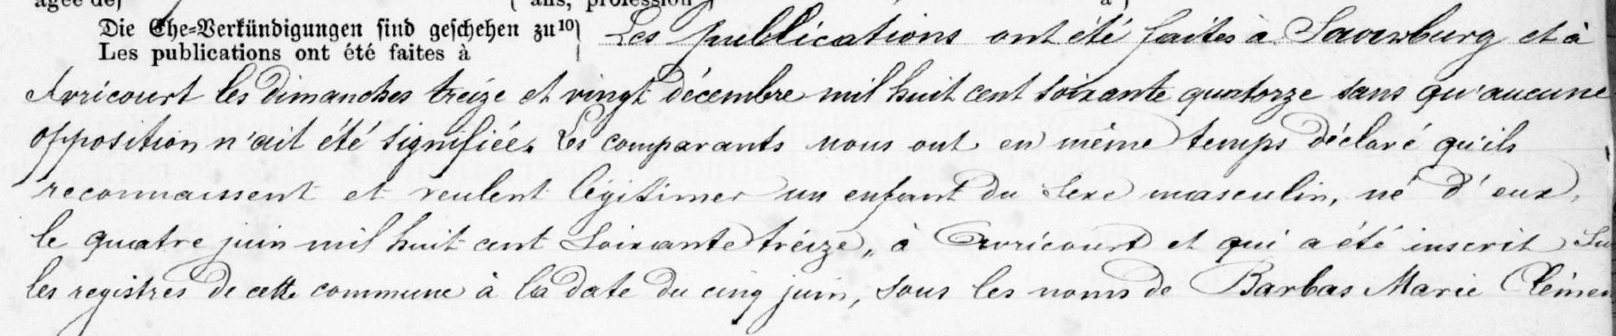 agée de} { ans, profession} à}
Die Ehe=Verkündigungen sind geschehen zu 10) Les publications ont été faites à Saarburg et à
Les publications ont été faites à
Avricourt les dimanches treize et vingt décembre mil huit cent soixante quatorze sans qu'aucune
opposition n'ait été signifiée. Les comparants nous ont en même temps déclaré qu'ils
reconnaissent et veulent légitimer un enfant du sexe masculin, né d'eux,
le quatre juin mil huit cent soixante treize, à Avricourt et qui a été inscrit su
les registres de cette commune à la date du cinq juin, sous les noms de Barbas Marie Clémen